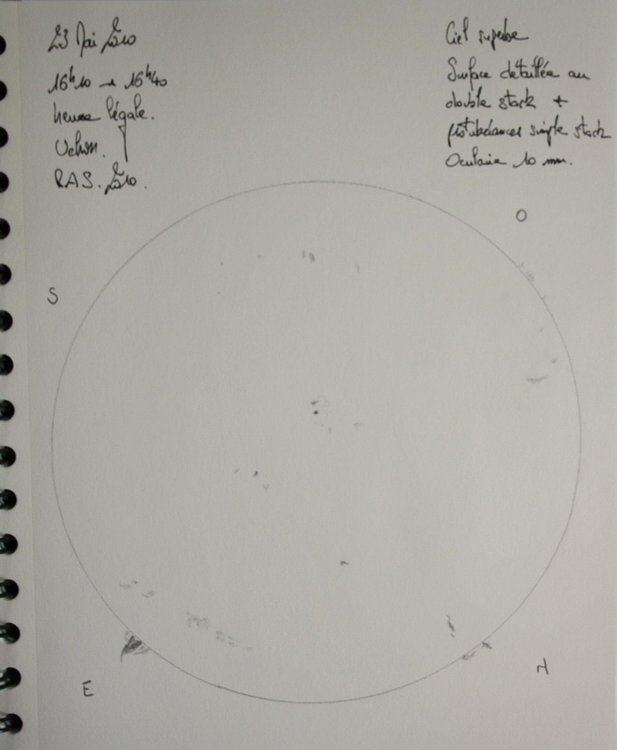 23 Mai 2010
16h10 → 16h40
heure légale.
Vehon.
RAS. 2010.
Ciel superbe
Surface détaillée au
double stack +
protubérances single stack
Oculaire 10 mm.
O
S
E
N